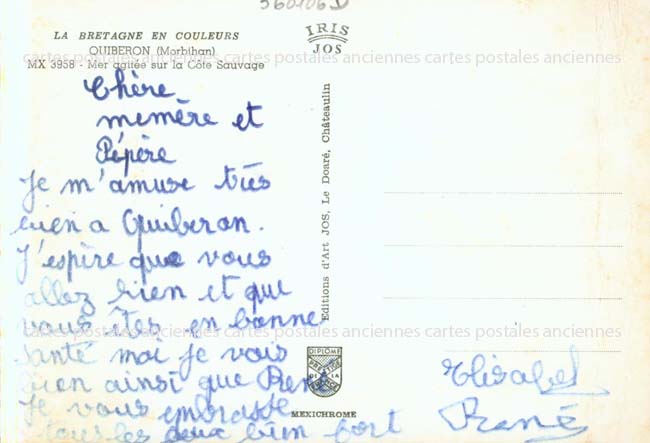 560106 D
LA BRETAGNE EN COULEURS
QUIBERON (Morbihan)
MX 3958 - Mer agitée sur la Côte Sauvage
IRIS
JOS
cartes postales anciennes cartes postales anciennes cartes postales anciennes
Chère
memère et
Pépère
Je m'amuse très
bien a Quiberon.
J'espère que vous
allez bien et que
vous êtes en bonne
santé moi je vais
bien ainsi que René
Je vous embrasse
tous les deux bien fort
Editions d'Art JOS, Le Doaré, Châteaulin
cartes postales anciennes cartes postales anciennes cartes postales anciennes
DIPLOME
PRESTIGE
DE LA
FRANCE
MEXICHROME
Elisabet
René